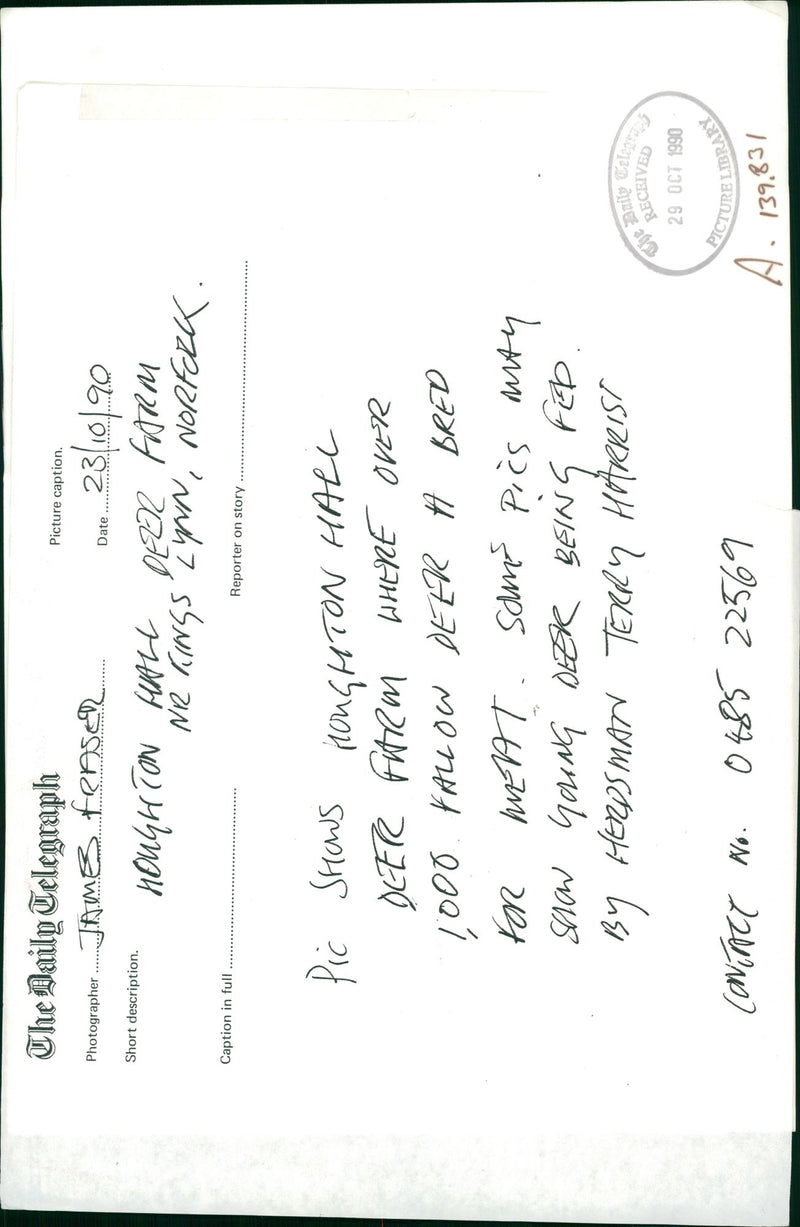 The Daily Telegraph
Picture caption.
Photographer JAMES FRASER Date 23/10/90
Short description.
HOUGHTON HALL DEER FARM
NR KINGS LYNN, NORFOLK.
Caption in full Reporter on story
PIC SHOWS HOUGHTON HALL
DEER FARM WHERE OVER
1,000 FALLOW DEER A BRED
FOR MEAT. SOME PICS MAY
SHOW YOUNG DEER BEING FED.
BY HERDSMAN TERRY HARRIST
CONTACT No. 0485 22569
The Daily Telegraph
RECEIVED
29 OCT 1990
PICTURE LIBRARY
A. 139.831